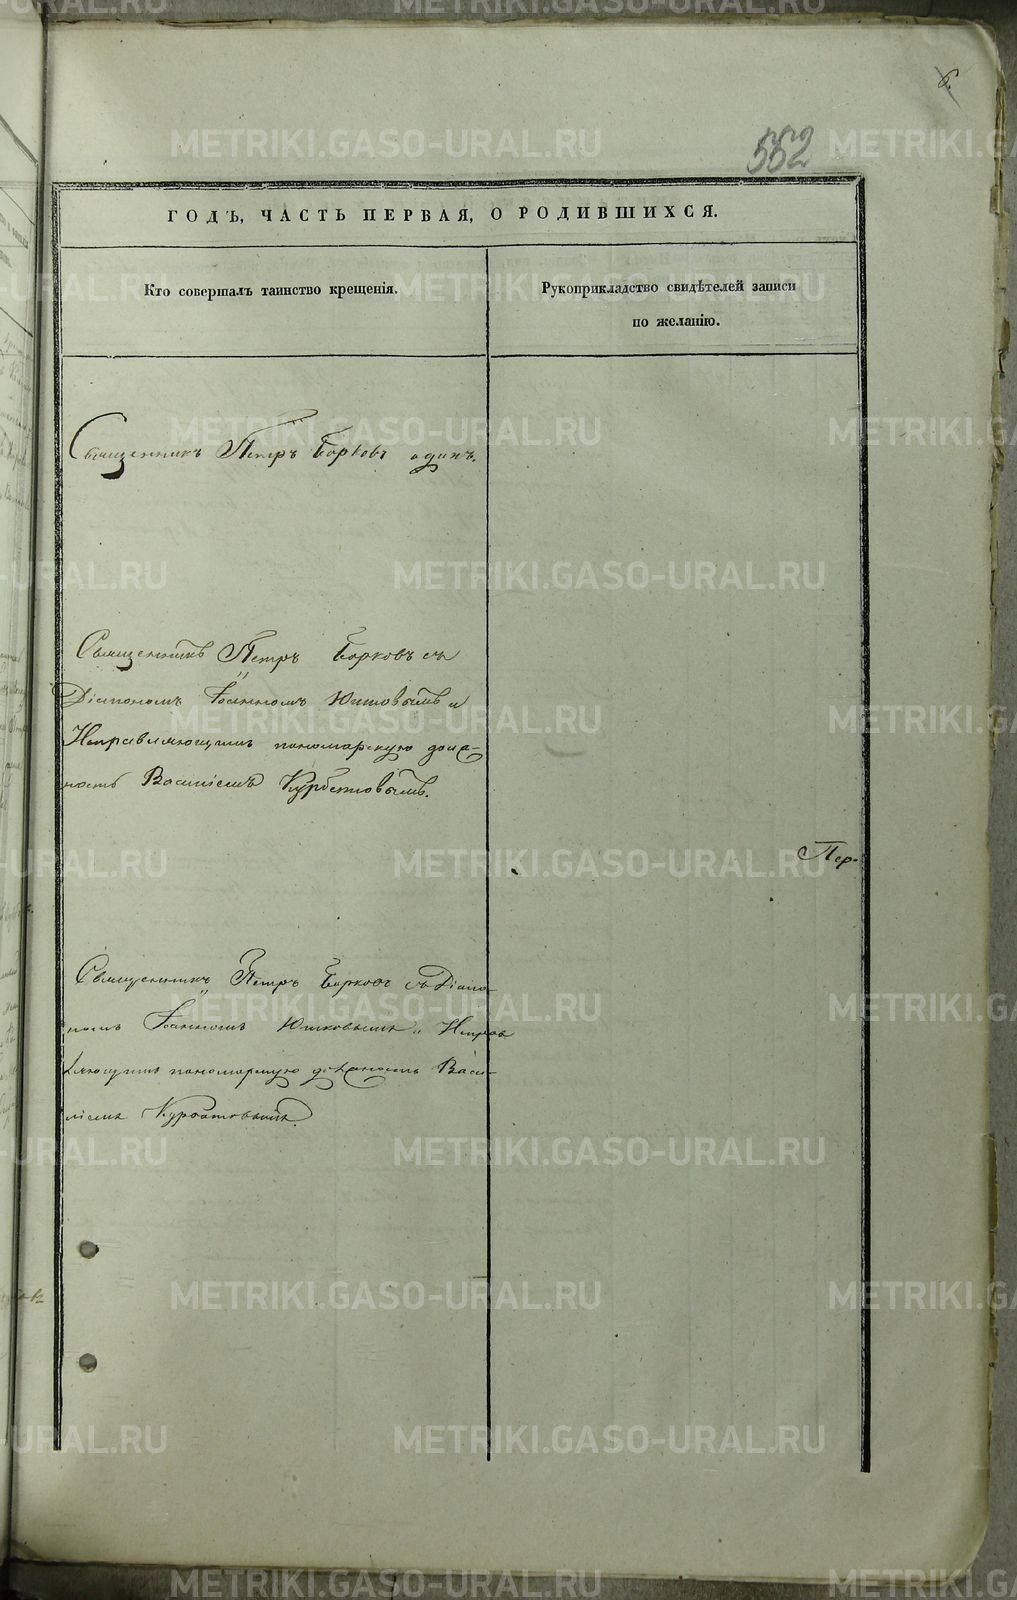 6.
552
ГОДЪ, ЧАСТЬ ПЕРВАЯ, О РОДИВШИХСЯ.
Кто совершалъ таинство крещенія.
Рукоприкладство свидѣтелей записи
по желанію.
Священникъ Петръ Борковъ одинъ.
Священникъ Петръ Борковъ съ
Діакономъ Іоанномъ Юшковымъ и
Исправляющимъ пономарскую долж-
ность Василіемъ Курбатовымъ.
Пер-
Священникъ Петръ Борковъ съ Діако-
номъ Іоанномъ Юшковымъ и Исправ
ляющимъ пономарскую должность Васи-
ліемъ Курбатовымъ.
METRIKI.GASO-URAL.RU